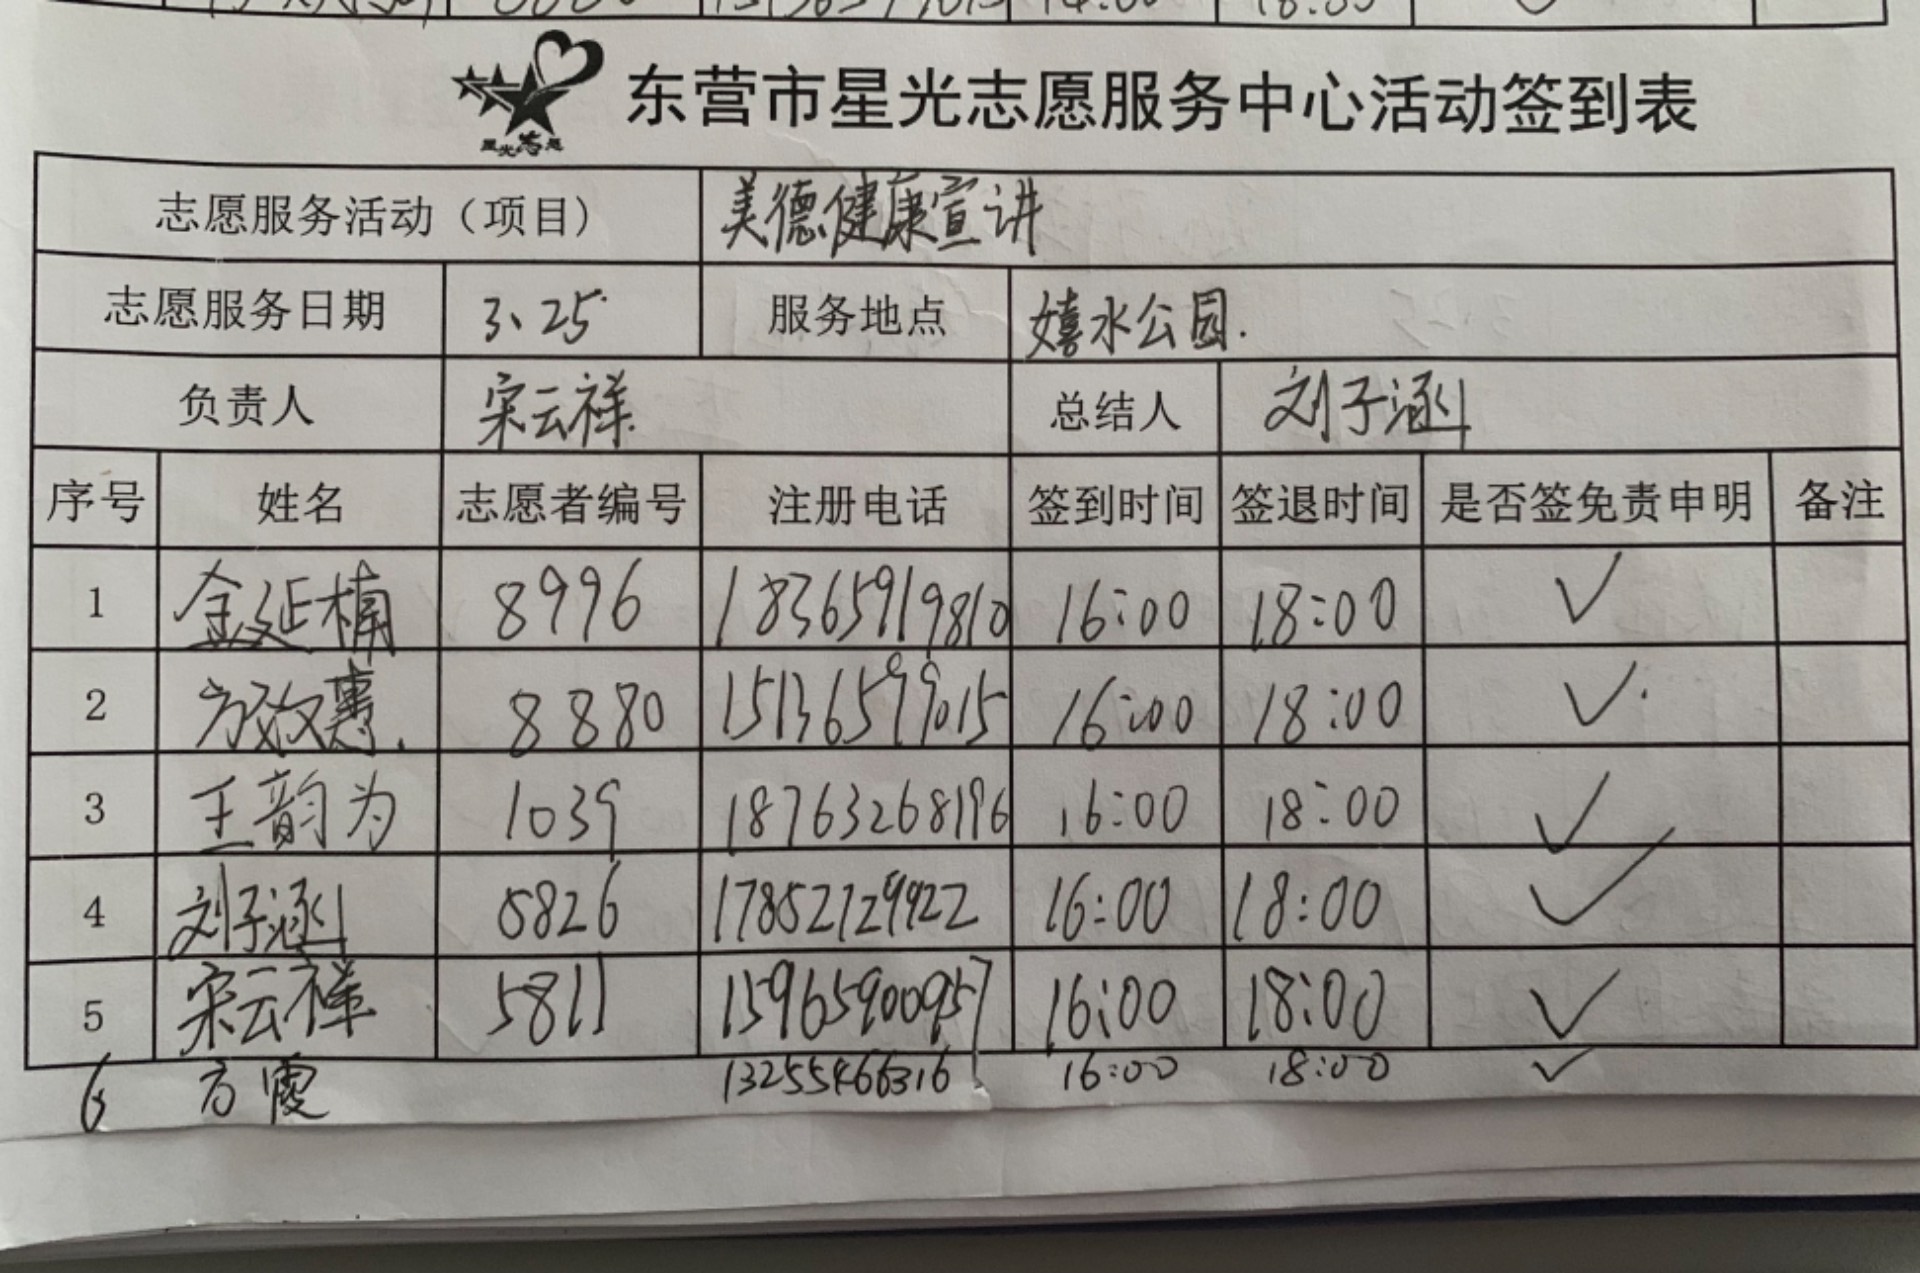 18:00
东营市星光志愿服务中心活动签到表
星光志愿
志愿服务活动（项目） 美德健康宣讲
志愿服务日期 3、25 服务地点 嬉水公园.
负责人 宋云祥. 总结人 刘子涵
序号 姓名 志愿者编号 注册电话 签到时间 签退时间 是否签免责申明 备注
1 金延楠 8996 18365919810 16:00 18:00 ✓
2 方效惠. 8880 15136599015 16:00 18:00 ✓
3 王韵为 1039 18763268196 16:00 18:00 ✓
4 刘子涵 5826 17852129922 16:00 18:00 ✓
5 宋云祥 5811 15965900957 16:00 18:00 ✓
6 方霞 13255466316 16:00 18:00 ✓